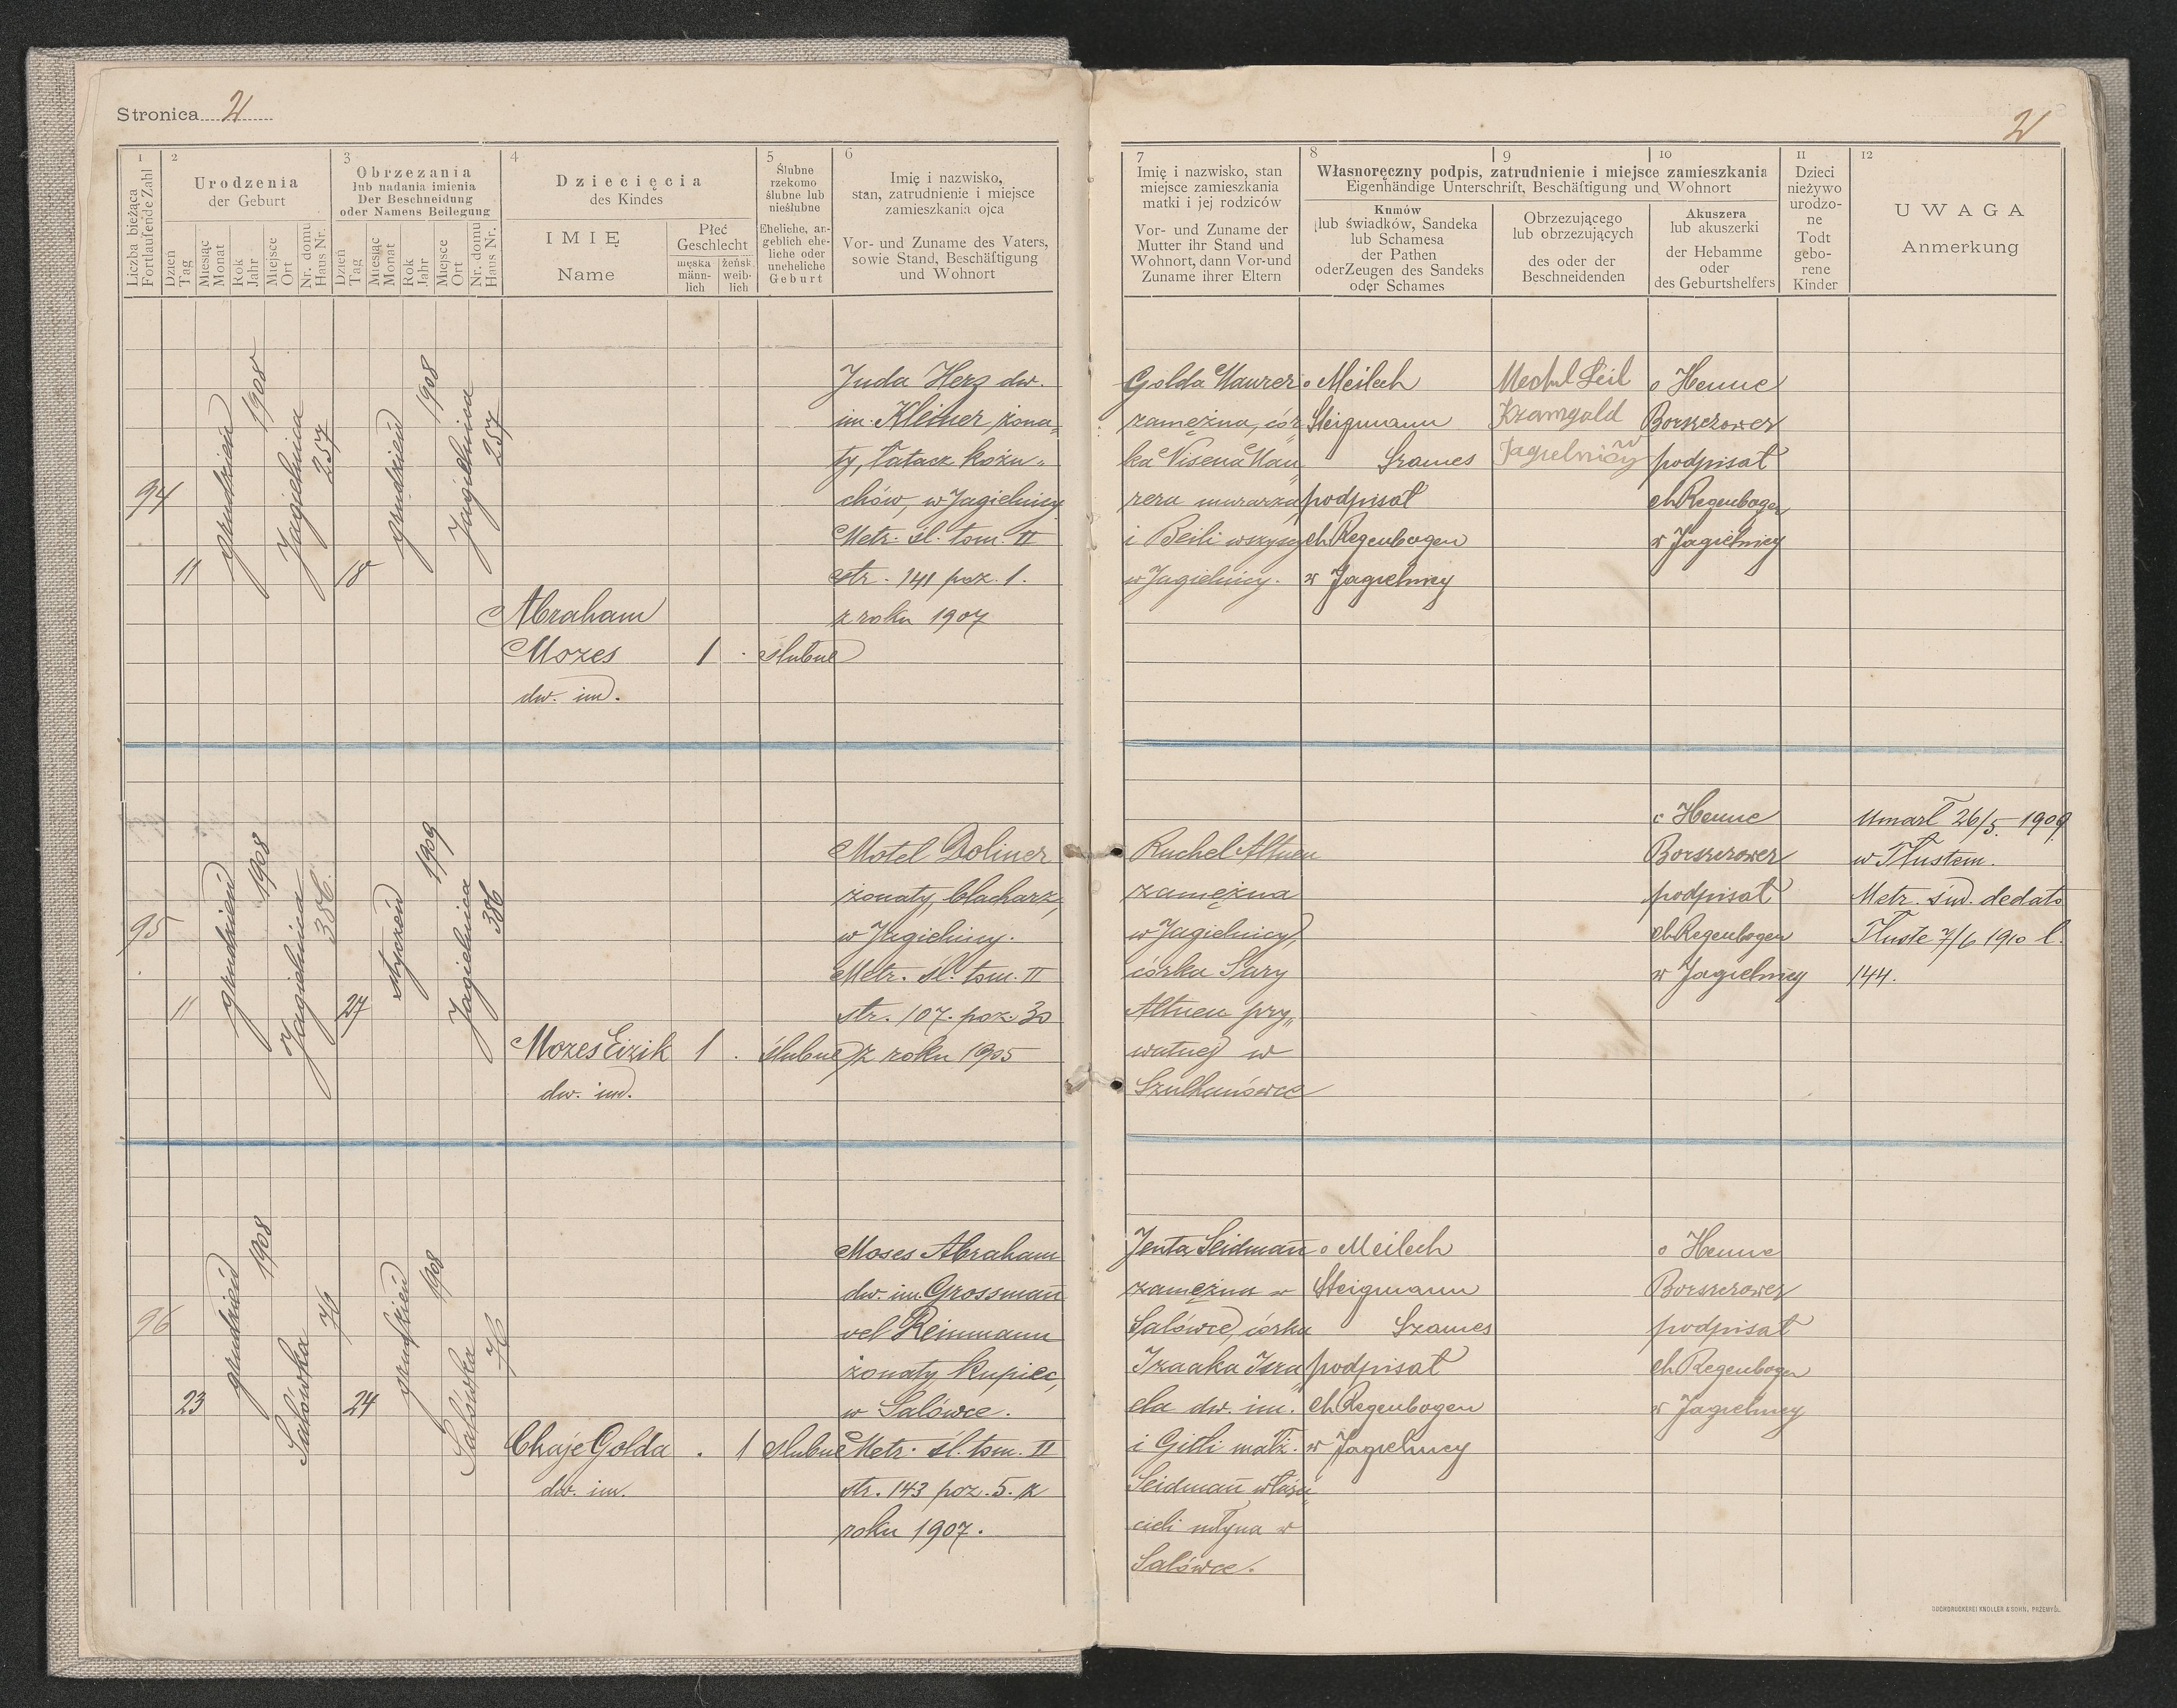 Stronica 21
21
1
Liczba bieżąca
Fortlaufende Zahl
2
Urodzenia
der Geburt
Dzień
Tag
Miesiąc
Monat
Rok
Jahr
Miejsce
Ort
Nr. domu
Haus Nr.
3
Obrzezania
lub nadania imienia
Der Beschneidung
oder Namens Beilegung
Dzień
Tag
Miesiąc
Monat
Rok
Jahr
Miejsce
Ort
Nr. domu
Haus Nr.
4
Dziecięcia
des Kindes
IMIĘ
Name
Płeć
Geschlecht
męska
männ-
lich
żeńsk.
weib-
lich
5
Ślubne
rzekomo
ślubne lub
nieślubne
Eheliche, an-
geblich ehe-
liche oder
uneheliche
Geburt
6
Imię i nazwisko,
stan, zatrudnienie i miejsce
zamieszkania ojca
Vor- und Zuname des Vaters,
sowie Stand, Beschäftigung
und Wohnort
7
Imię i nazwisko, stan
miejsce zamieszkania
matki i jej rodziców
Vor- und Zuname der
Mutter ihr Stand und
Wohnort, dann Vor-und
Zuname ihrer Eltern
8
9
10
Własnoręczny podpis, zatrudnienie i miejsce zamieszkania
Eigenhändige Unterschrift, Beschäftigung und Wohnort
Kumów
lub świadków, Sandeka
lub Schamesa
der Pathen
oder Zeugen des Sandeks
oder Schames
Obrzezującego
lub obrzezujących
des oder der
Beschneidenden
Akuszera
lub akuszerki
der Hebamme
oder
des Geburtshelfers
11
Dzieci
nieżywo
urodzo-
ne
Todt
gebo-
rene
Kinder
12
UWAGA
Anmerkung
94
11
grudzień
1908
Jagielnica
257
18
grudzień
1908
Jagielnica
257
Abraham
Mozes
dw. im.
1 .
ślubne
Juda Herz dw.
im. Kleiner żona„
ty, łatacz kożu„
chów, w Jagielnicy
Metr. śl. tom. II
str. 141 poz. 1.
z roku 1907
Golda Maurer
zamężna, cór„
ka Nisena Mau„
rera murarza
i Beili wszyscy
w Jagielnicy.
o Meilech
Steigmann
Szames
podpisał
Ch Regenbogen
w Jagielnicy
Mechel Leib
Kramgold
w
Jagielnicy
o Henne
Borszczower
podpisał
Ch Regenbogen
w Jagielnicy
95
11
grudzień
1908
Jagielnica
386.
27
styczeń
1909
Jagielnica
386
Mozes Eizik
dw. im.
1 .
ślubne
Motel Doliner
żonaty, blacharz,
w Jagielnicy.
Metr. śl. tom. II
str. 107. poz. 30
z roku 1905
Ruchel Altneu
zamężna
w Jagielnicy,
córka Sary
Altneu pry„
watnej w
Szulhanówce
o Henne
Borszczower
podpisał
Ch Regenbogen
w Jagielnicy
Umarł 26/5. 1909
w Tłustem.
Metr. św. dedato
Tłuste 7/6 1910 l.
144.
96
23
grudzień
1908
Salówka
76
24
grudzień
1908
Salówka
76
Chaje Golda
dw. im.
. 1
ślubne
Moses Abraham
dw. im. Grossmann
vel Reinmann
żonaty kupiec,
w Salówce.
Metr. śl. tom. II
str. 143 poz. 5. z
roku 1907.
Jenta Seidmann
zamężna w
Salówce, córka
Izaaka Isra„
ela dw. im.
i Gitli małż.
Seidmann właści„
cieli młyna w
Salówce.
o Meilech
Steigmann
Szames
podpisał
Ch Regenbogen
w Jagielnicy
o Henne
Borszczower
podpisał
Ch Regenbogen
w Jagielnicy
BUCHDRUCKEREI KNOLLER & SOHN, PRZEMYŚL.